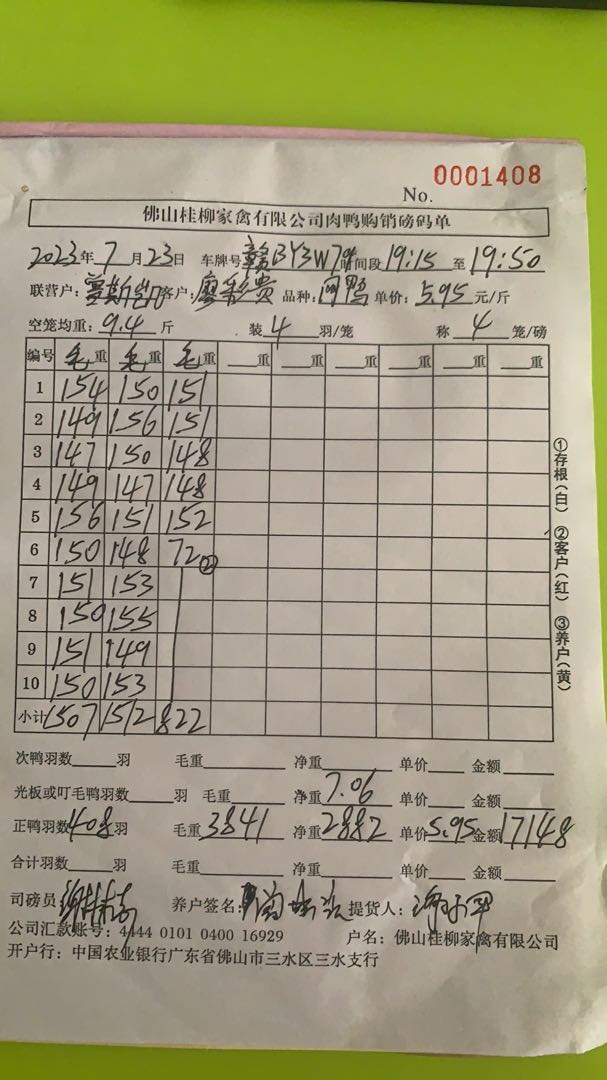 No. 0001408
佛山桂柳家禽有限公司肉鸭购销磅码单
2023年7月23日 车牌号赣BY3W79时间段19:15至19:50
联营户: 客户:廖彩贵 品种: 单价:5.95元/斤
空笼均重:9.4斤 装4羽/笼 称4笼/磅
编号 毛重 毛重 毛重 重 重 重 重 重
1 154 150 151
2 149 156 151
3 147 150 148
4 149 147 148
5 156 151 152
6 150 148 72②
7 151 153
8 150 155
9 151 149
10 150 153
小计 1507 1512 822
①存根(白) ②客户(红) ③养户(黄)
次鸭羽数 羽 毛重 净重 单价 金额
光板或叮毛鸭羽数 羽 毛重 净重7.06 单价 金额
正鸭羽数408羽 毛重3841 净重2882 单价5.95金额17148
合计羽数 羽 毛重 净重 单价 金额
司磅员 养户签名: 提货人:
公司汇款账号:4444 0101 0400 16929 户名:佛山桂柳家禽有限公司
开户行:中国农业银行广东省佛山市三水区三水支行